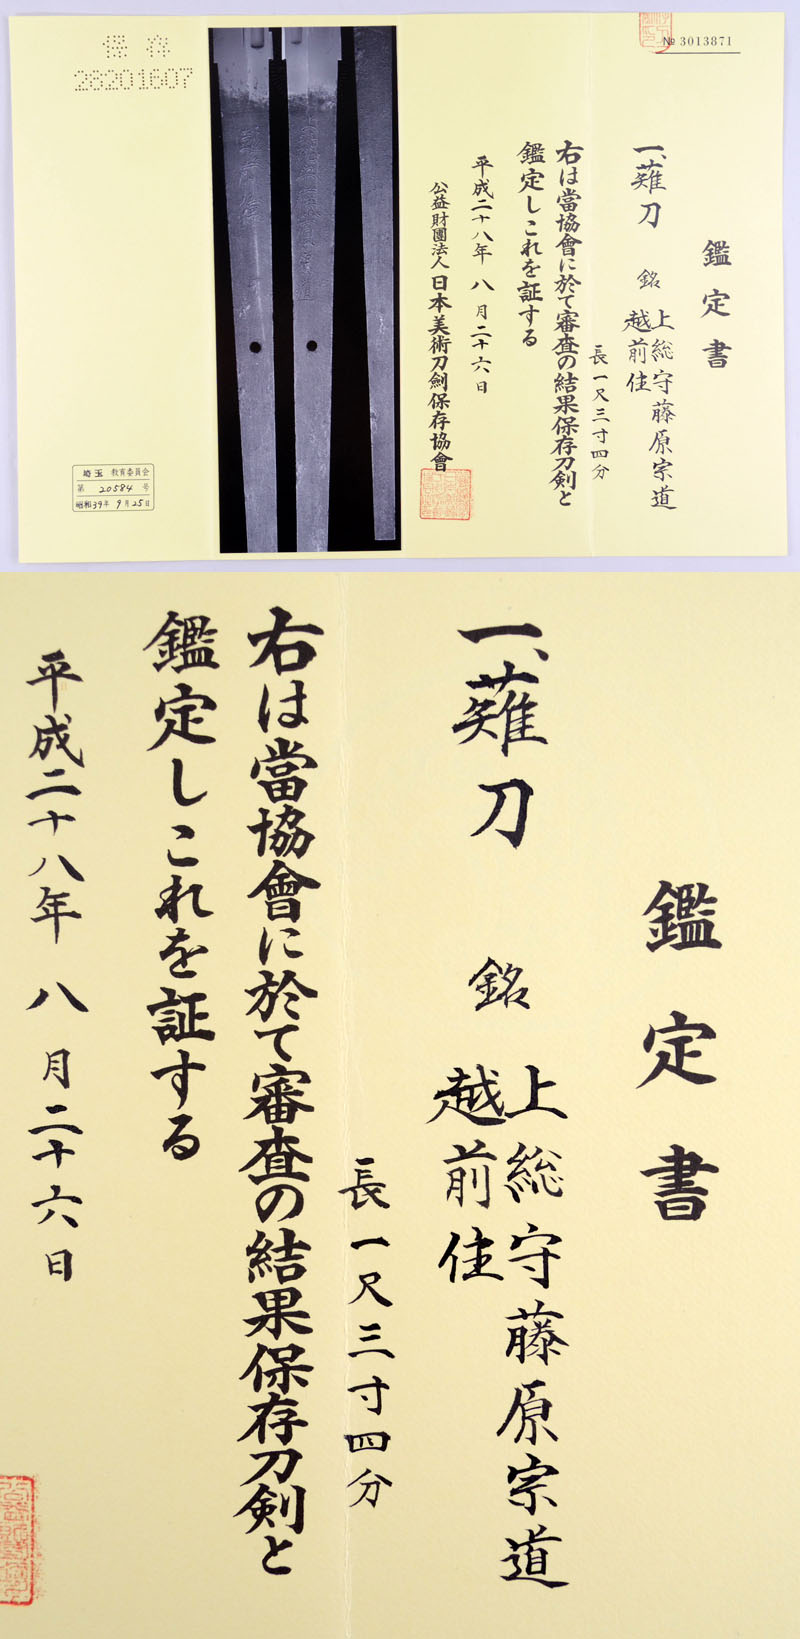 № 3013871
鑑定書
一、薙刀 銘 上総守藤原宗道
越前住
長一尺三寸四分
右は當協會に於て審査の結果保存刀剣と
鑑定しこれを証する
平成二十八年 八月二十六日
公益財團法人 日本美術刀劍保存協會
保存
28201607
埼玉 教育委員会
第 20584 号
昭和39年 9月25日
鑑定書
一、薙刀 銘 上総守藤原宗道
越前住
長一尺三寸四分
右は當協會に於て審査の結果保存刀剣と
鑑定しこれを証する
平成二十八年 八月二十六日